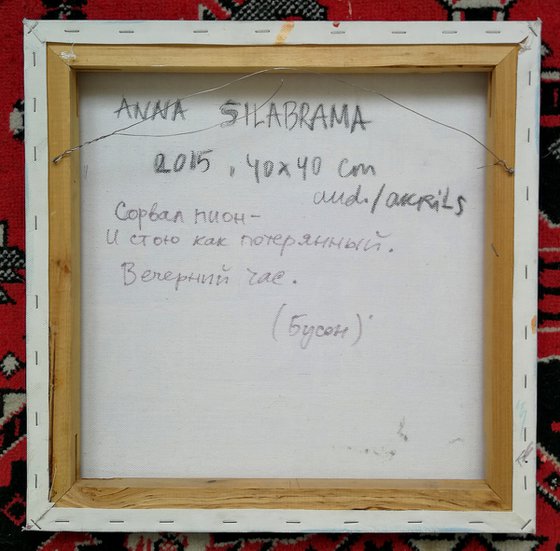 ANNA SILABRAMA
2015, 40x40 cm
aud./akrils
Сорвал пион-
И стою как потерянный.
Вечерний час.
(Бусон)